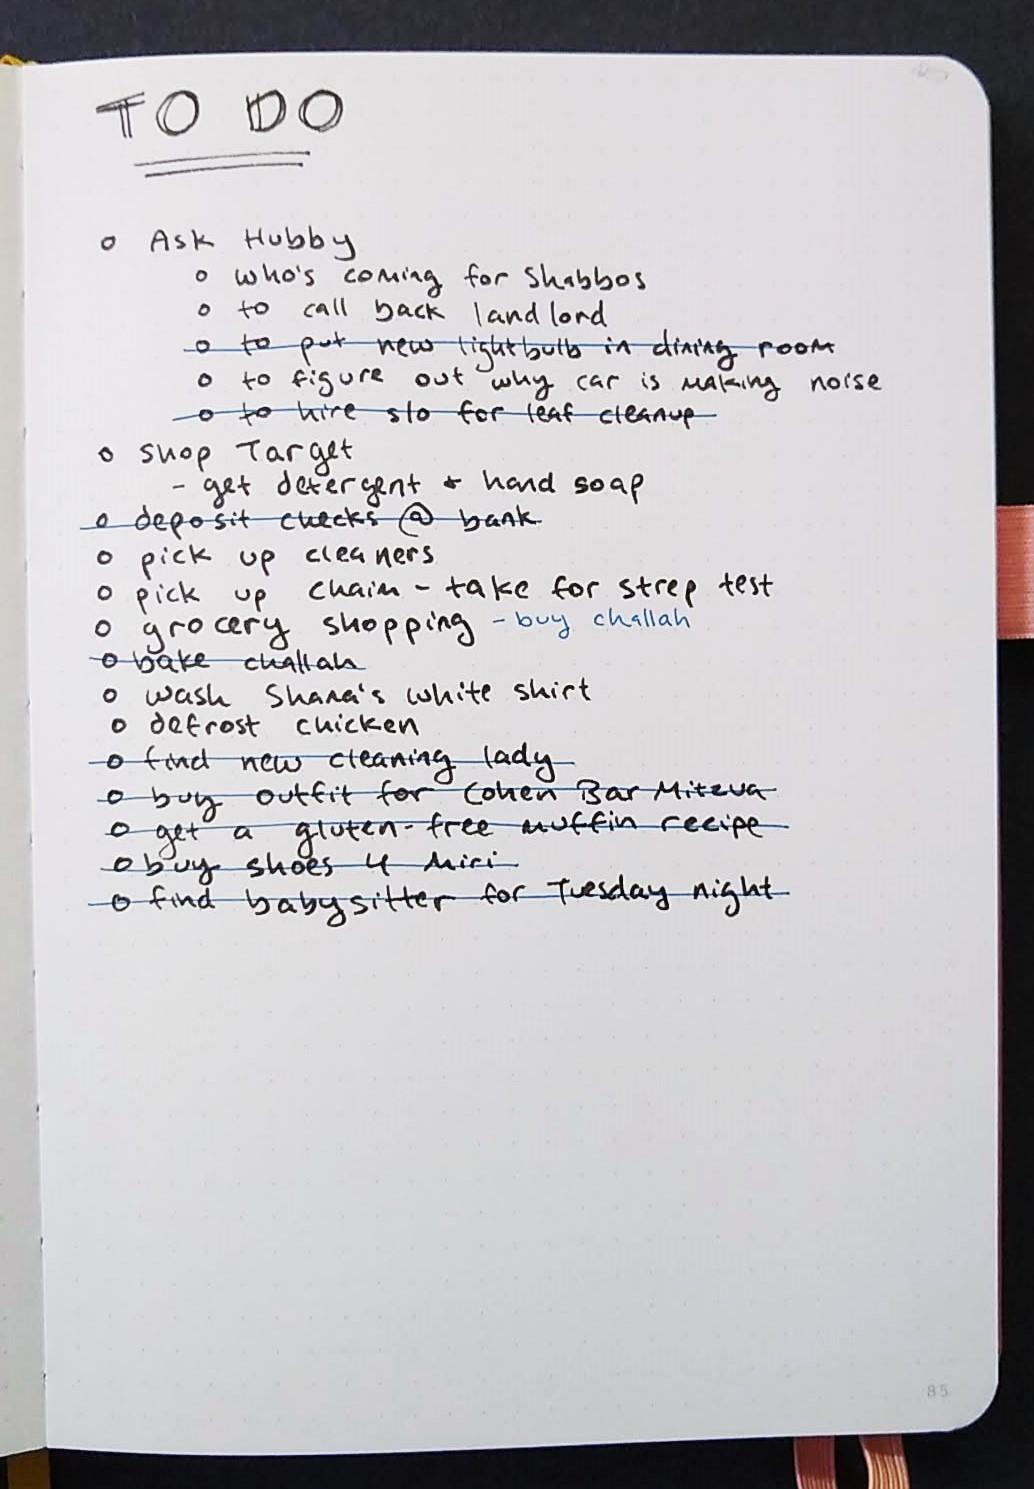 TO DO
o Ask Hubby
o who's coming for Shabbos
o to call back landlord
o to put new lightbulb in dining room
o to figure out why car is making noise
o to hire s/o for leaf cleanup
o shop Target
- get detergent + hand soap
o deposit checks @ bank
o pick up cleaners
o pick up chaim - take for strep test
o grocery shopping - buy challah
o bake challah
o wash Shana's white shirt
o defrost chicken
o find new cleaning lady
o buy outfit for Cohen Bar Mitzva
o get a gluten-free muffin recipe
o buy shoes 4 Miri
o find babysitter for Tuesday night
85